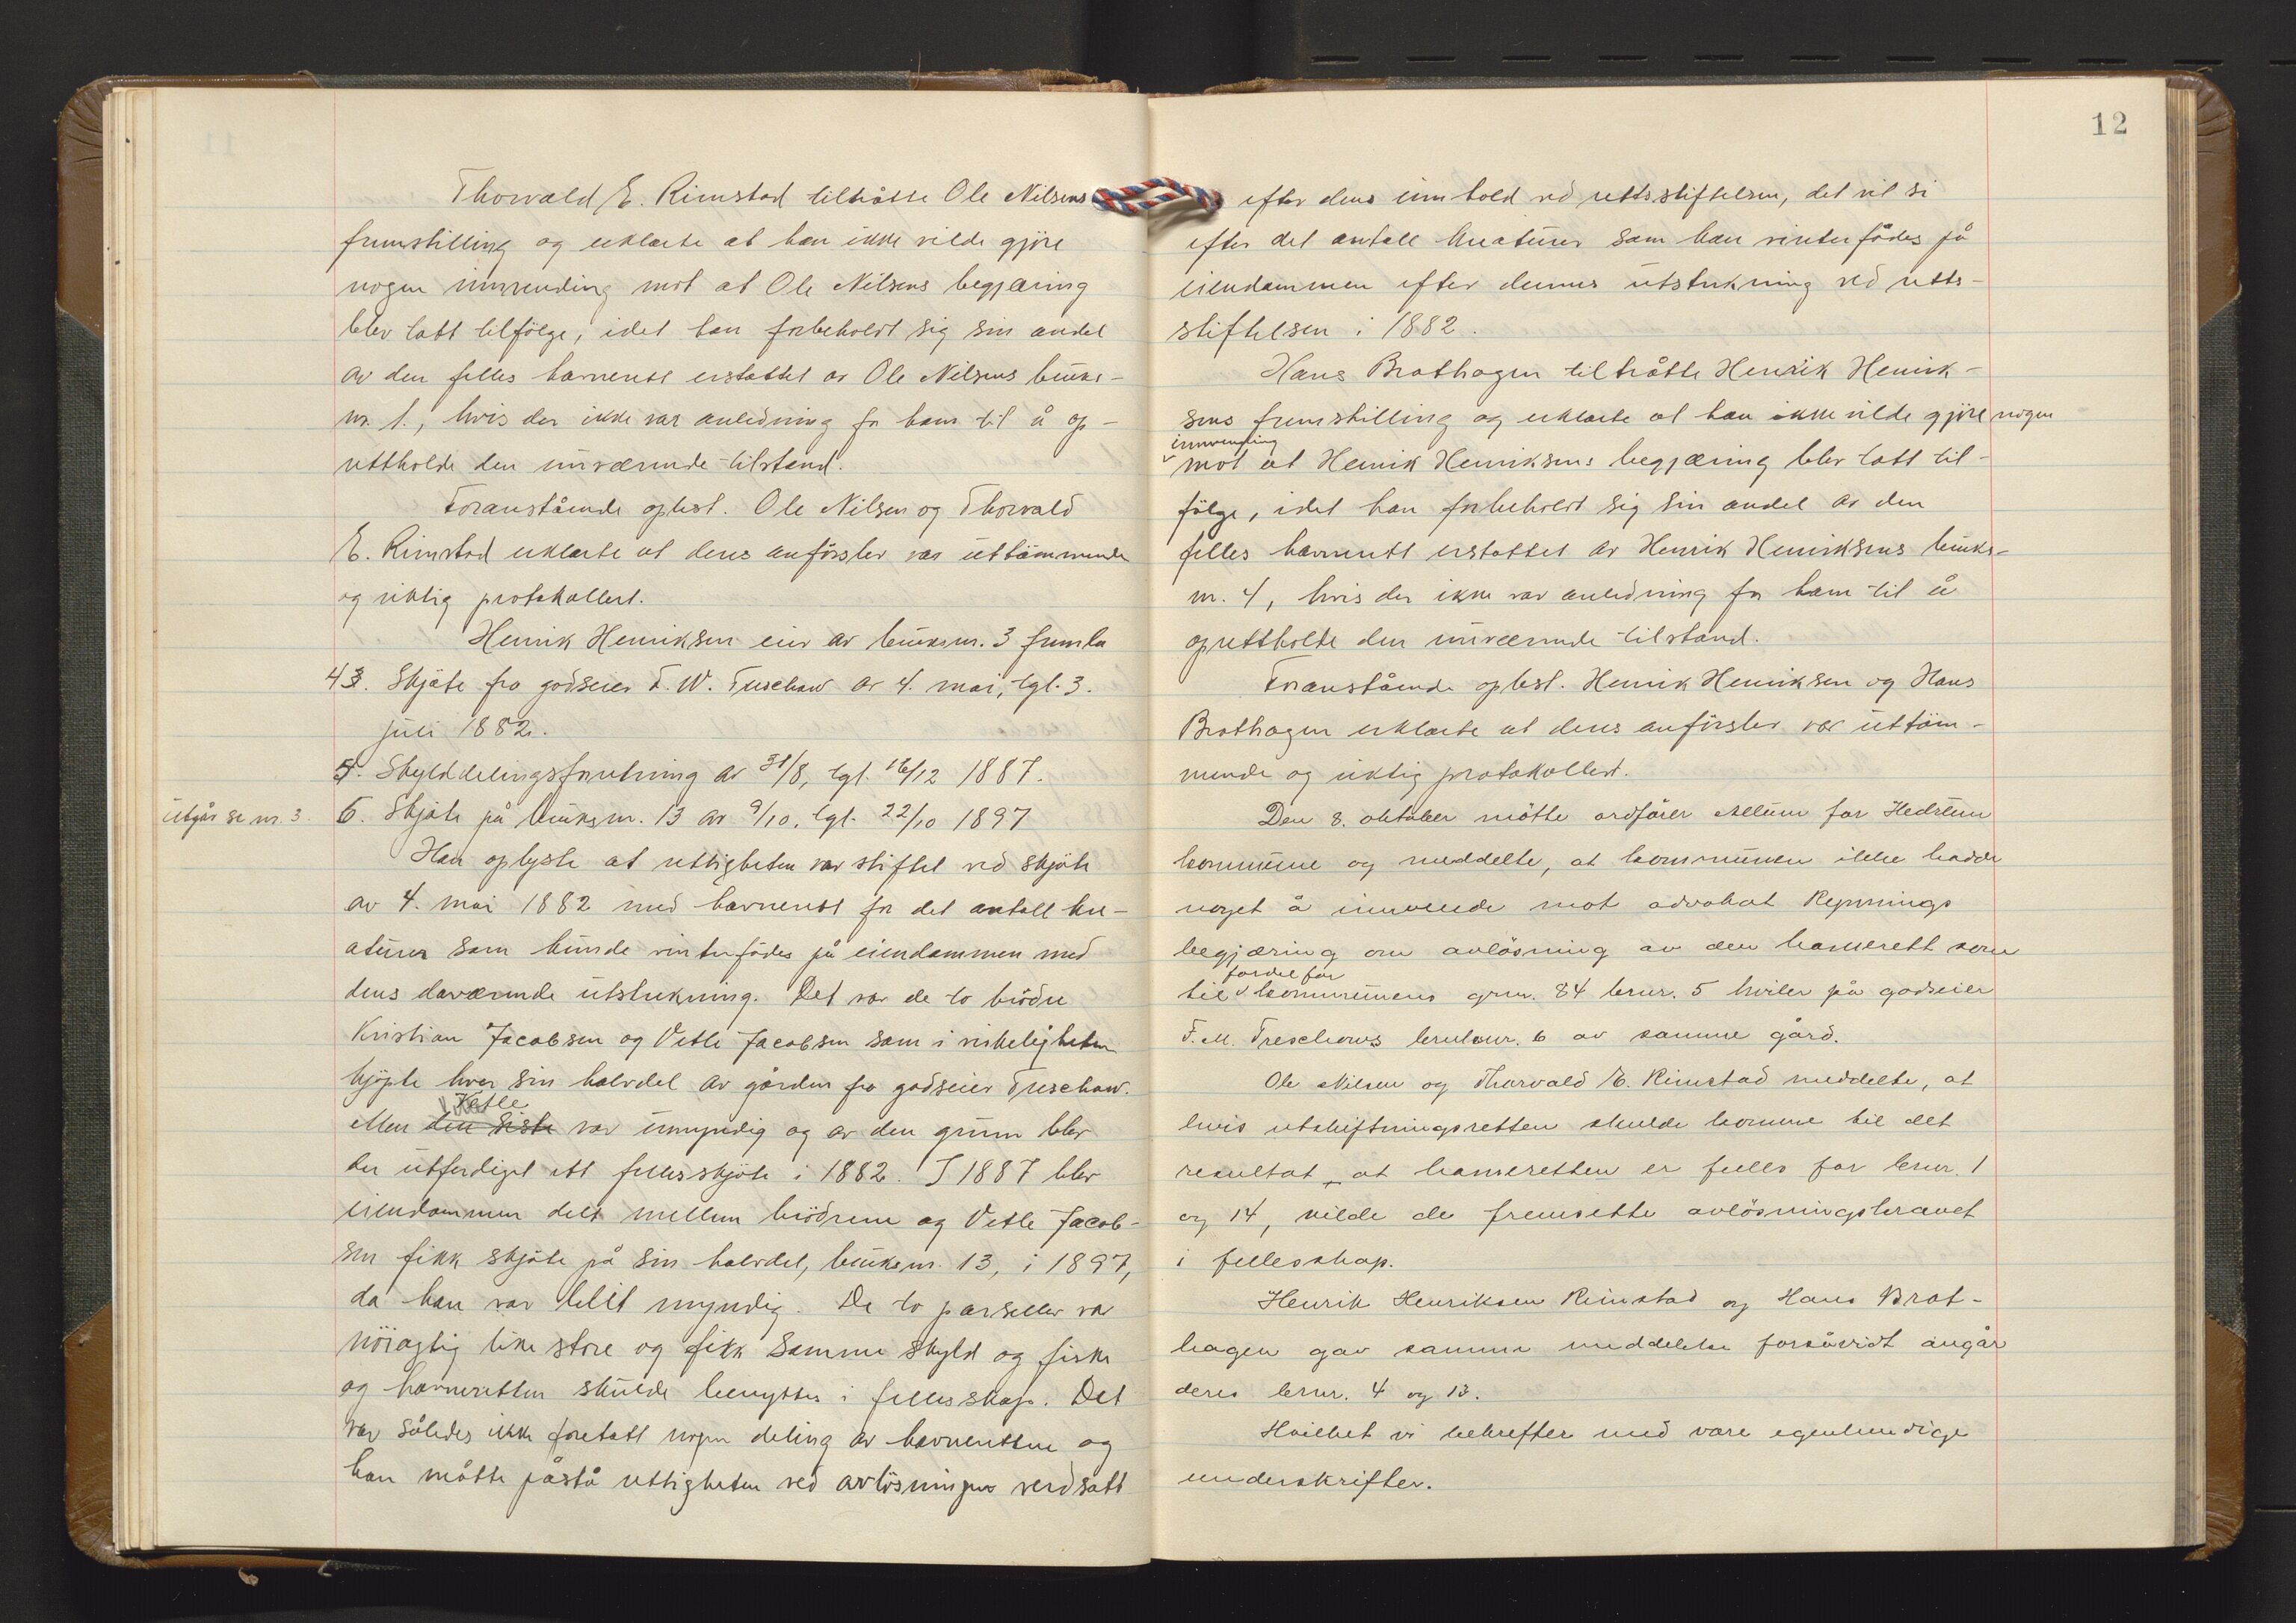 Thorvald E. Rimstad tiltrådte Ole Nilsens
fremstilling og erklærte at han ikke vilde gjöre
nogen innvending mot at Ole Nilsens begjæring
blev tatt tilfölge, idet han forbeholdt sig sin andel
av den felles havnerett erstattet av Ole Nilsens bruks-
nr. 1., hvis der ikke var anledning for ham til å op-
rettholde den nuværende tilstand.
Foranstående oplest. Ole Nilsen og Thorvald
E. Rimstad erklærte at deres anförsler var uttömmende
og riktig protokollert.
Henrik Henriksen eier av bruksnr. 3 fremla
43. Skjöte fra godseier F. W. Treschow av 4. mai, tgl. 3.
juli 1882.
5. Skylddelingsforretning av 31/8, tgl. 16/12 1887.
utgår se nr. 3.
6. Skjöte på bruksnr. 13 av 9/10, tgl. 22/10 1897
Han oplyste at rettigheten var stiftet ved skjöte
av 4. mai 1882 med havnerett for det antall kre-
aturer som kunde vinterfödes på eiendommen med
dens daværende utstrekning. Det var de to brödre
Kristian Jacobsen og Vetle Jacobsen som i virkeligheten
kjöpte hver sin halvdel av gården fra godseier Treschow.
Vetle
Men den siste var umyndig og av den grunn blev
der utferdiget ett fellesskjöte i 1882. I 1887 blev
eiendommen delt mellem brödrene og Vetle Jacob-
sen fikk skjöte på sin halvdel, bruksnr. 13, i 1897,
da han var blitt myndig. De to parseller var
nöiagtig like store og fikk samme skyld og fiske
og havneretten skulde benyttes i fellesskap. Det
var således ikke foretatt nogen deling av havneretten og
han måtte påstå rettigheten ved avlösningen verdsatt
12
efter dens innhold ved rettsstiftelsen, det vil si
efter det antall kreaturer som kan vinterfödes på
eiendommen efter dennes utstrekning ved retts-
stiftelsen i 1882.
Hans Brathagen tiltrådte Henrik Henrik-
sens fremstilling og erklærte at han ikke vilde gjöre nogen
innvending
mot at Henrik Henriksens begjæring blev tatt til-
fölge, idet han forbeholdt sig sin andel av den
felles havnerett erstattet av Henrik Henriksens bruks-
nr. 4, hvis der ikke var anledning for ham til å
oprettholde den nuværende tilstand.
Foranstående oplest. Henrik Henriksen og Hans
Brathagen erklærte at deres anförsler var uttöm-
mende og riktig protokollert.
Den 8. oktober mötte ordförer Mellum for Hedrum
kommune og meddelte, at kommunen ikke hadde
noget å innvende mot advokat Rynnings
begjæring om avlösning av den havnerett som
fordel for
til kommunens grnr. 84 brnr. 5 hviler på godseier
F. M. Treschows bruksnr. 6 av samme gård.
Ole Nilsen og Thorvald E. Rimstad meddelte, at
hvis utskiftningsretten skulde komme til det
resultat, at havneretten er felles for brnr. 1
og 14, vilde de fremsette avlösningskravet
i fellesskap.
Henrik Henriksen Rimstad og Hans Brat-
hagen gav samme meddelelse forsåvidt angår
deres brnr. 4 og 13.
Hvilket vi bekrefter med våre egenhendige
underskrifter.